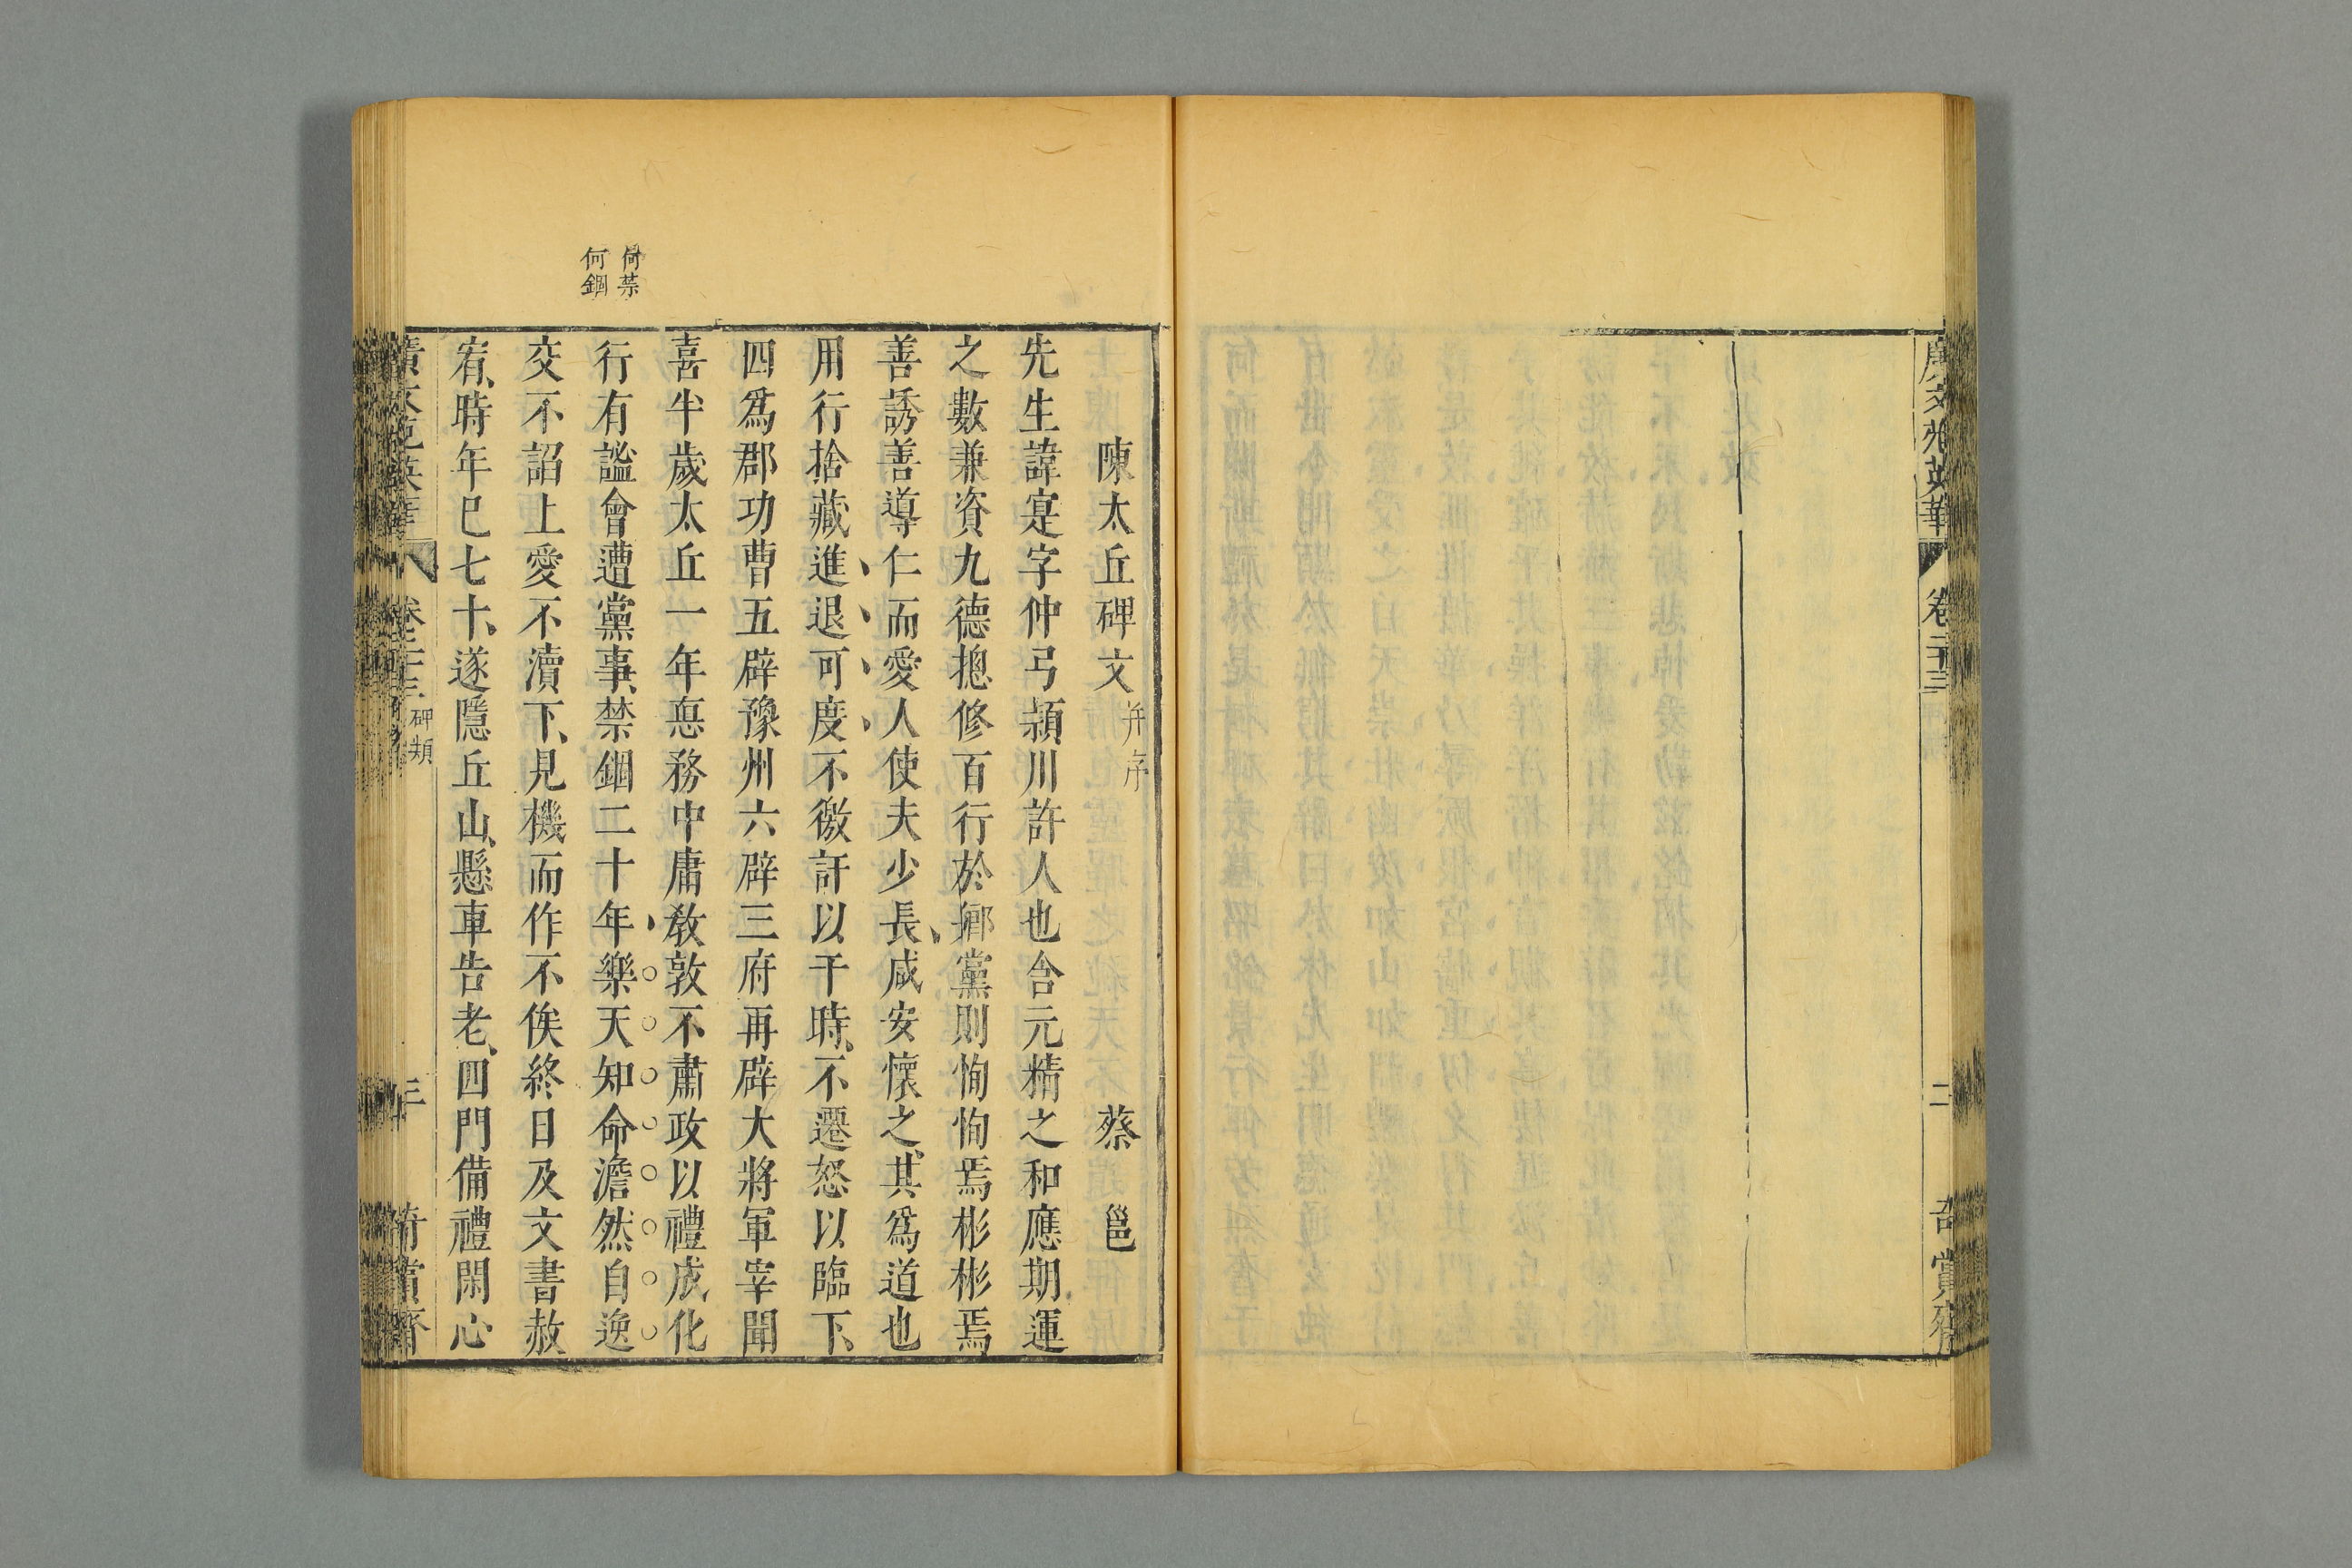 廣文苑英華 卷二十三 二 奇賞齋
陳太丘碑文 并序 蔡邕
先生諱寔字仲弓潁川許人也含元精之和應期運
之數兼資九德揔修百行於鄉黨則恂恂焉彬彬焉
善誘善導仁而愛人使夫少長、咸安懷之、其爲道也
用行捨藏進、退、可、度、不徼訐以干時、不遷怒以臨下、
四爲郡功曹五辟豫州六辟三府再辟大將軍宰聞
喜半歲太丘一年悳務中庸敎敦不肅政以禮成化
行有謐會遭黨事、禁錮二十年樂天知命澹然自逸
交不諂上愛不瀆下、見機而作不俟終日及文書赦
宥、時年已七十、遂隱丘山、懸車告老、四門備禮閑心
何禁
何錮
廣文苑英華 卷二十三 碑類 三 奇賞齋